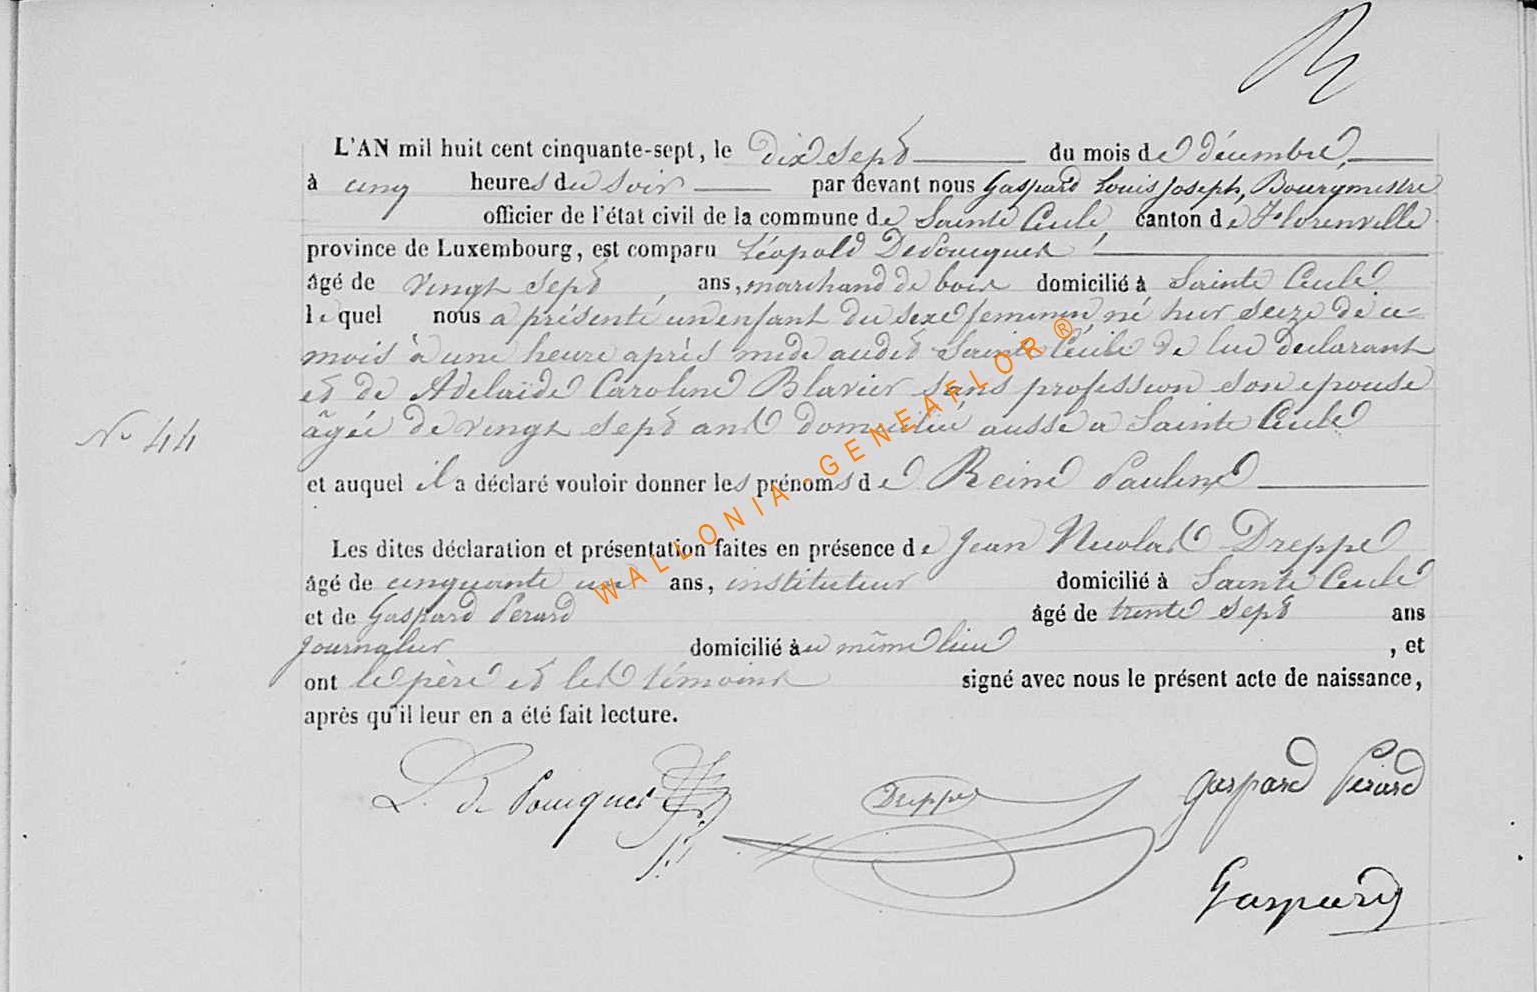 L'AN mil huit cent cinquante-sept, le dix sept du mois de décembre,
à cinq heures du soir par devant nous Gaspard Louis Joseph, Bourgmestre
officier de l'état civil de la commune de Sainte Cécile, canton de Florenville
province de Luxembourg, est comparu Léopold Depouques
âgé de vingt sept ans, marchand de bois domicilié à Sainte Cécile
lequel nous a présenté un enfant du sexe feminin né hier seize de ce
mois à une heure après mide audit Sainte Cécile de lui declarant
et de Adelaïde Caroline Blavier sans profession son epouse
N° 44
âgée de vingt sept ans domiciliée aussi a Sainte Cécile
et auquel il a déclaré vouloir donner les prénoms de Reine Pauline
Les dites déclaration et présentation faites en présence de Jean Nicolas Dreppe
âgé de cinquante un ans, instituteur domicilié à Sainte Cécile
et de Gaspard Perard âgé de trente sept ans
journalier domicilié au même lieu , et
ont le père et les témoins signé avec nous le présent acte de naissance,
après qu'il leur en a été fait lecture.
L. de Pouques Dreppe Gaspard Perard
Gaspard
WALLONIA-GENEAFLOR ®